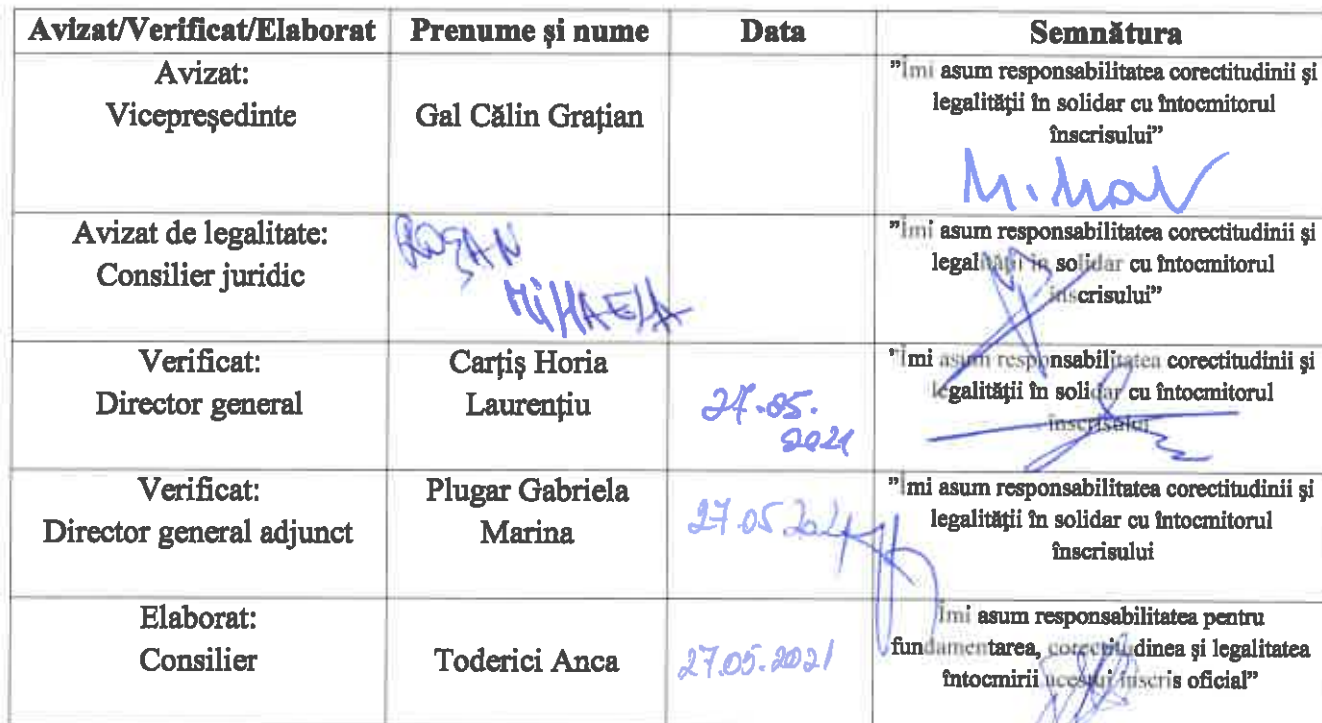 Avizat/Verificat/Elaborat Prenume și nume Data Semnătura
Avizat:
Vicepreședinte
Gal Călin Grațian
"Îmi asum responsabilitatea corectitudinii și
legalității în solidar cu întocmitorul
înscrisului"
Avizat de legalitate:
Consilier juridic
ROȘAN
MIHAELA
"Îmi asum responsabilitatea corectitudinii și
legalității în solidar cu întocmitorul
înscrisului"
Verificat:
Director general
Carțiș Horia
Laurențiu
27.05.
2021
"Îmi asum responsabilitatea corectitudinii și
legalității în solidar cu întocmitorul
înscrisului
Verificat:
Director general adjunct
Plugar Gabriela
Marina
27.05 2021
"Îmi asum responsabilitatea corectitudinii și
legalității în solidar cu întocmitorul
înscrisului
Elaborat:
Consilier
Toderici Anca
27.05.2021
Îmi asum responsabilitatea pentru
fundamentarea, corectitudinea și legalitatea
întocmirii acestui înscris oficial"